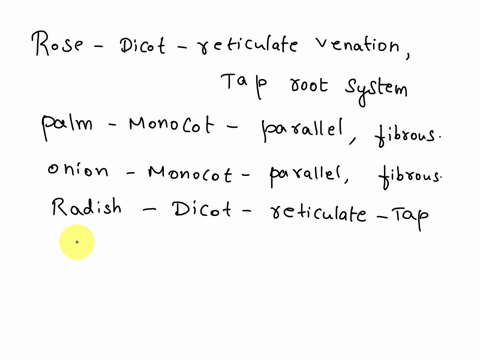 Rose - Dicot - reticulate venation,
Tap root system
palm - Monocot - parallel, fibrous.
onion - Monocot - parallel, fibrous.
Radish - Dicot - reticulate - Tap